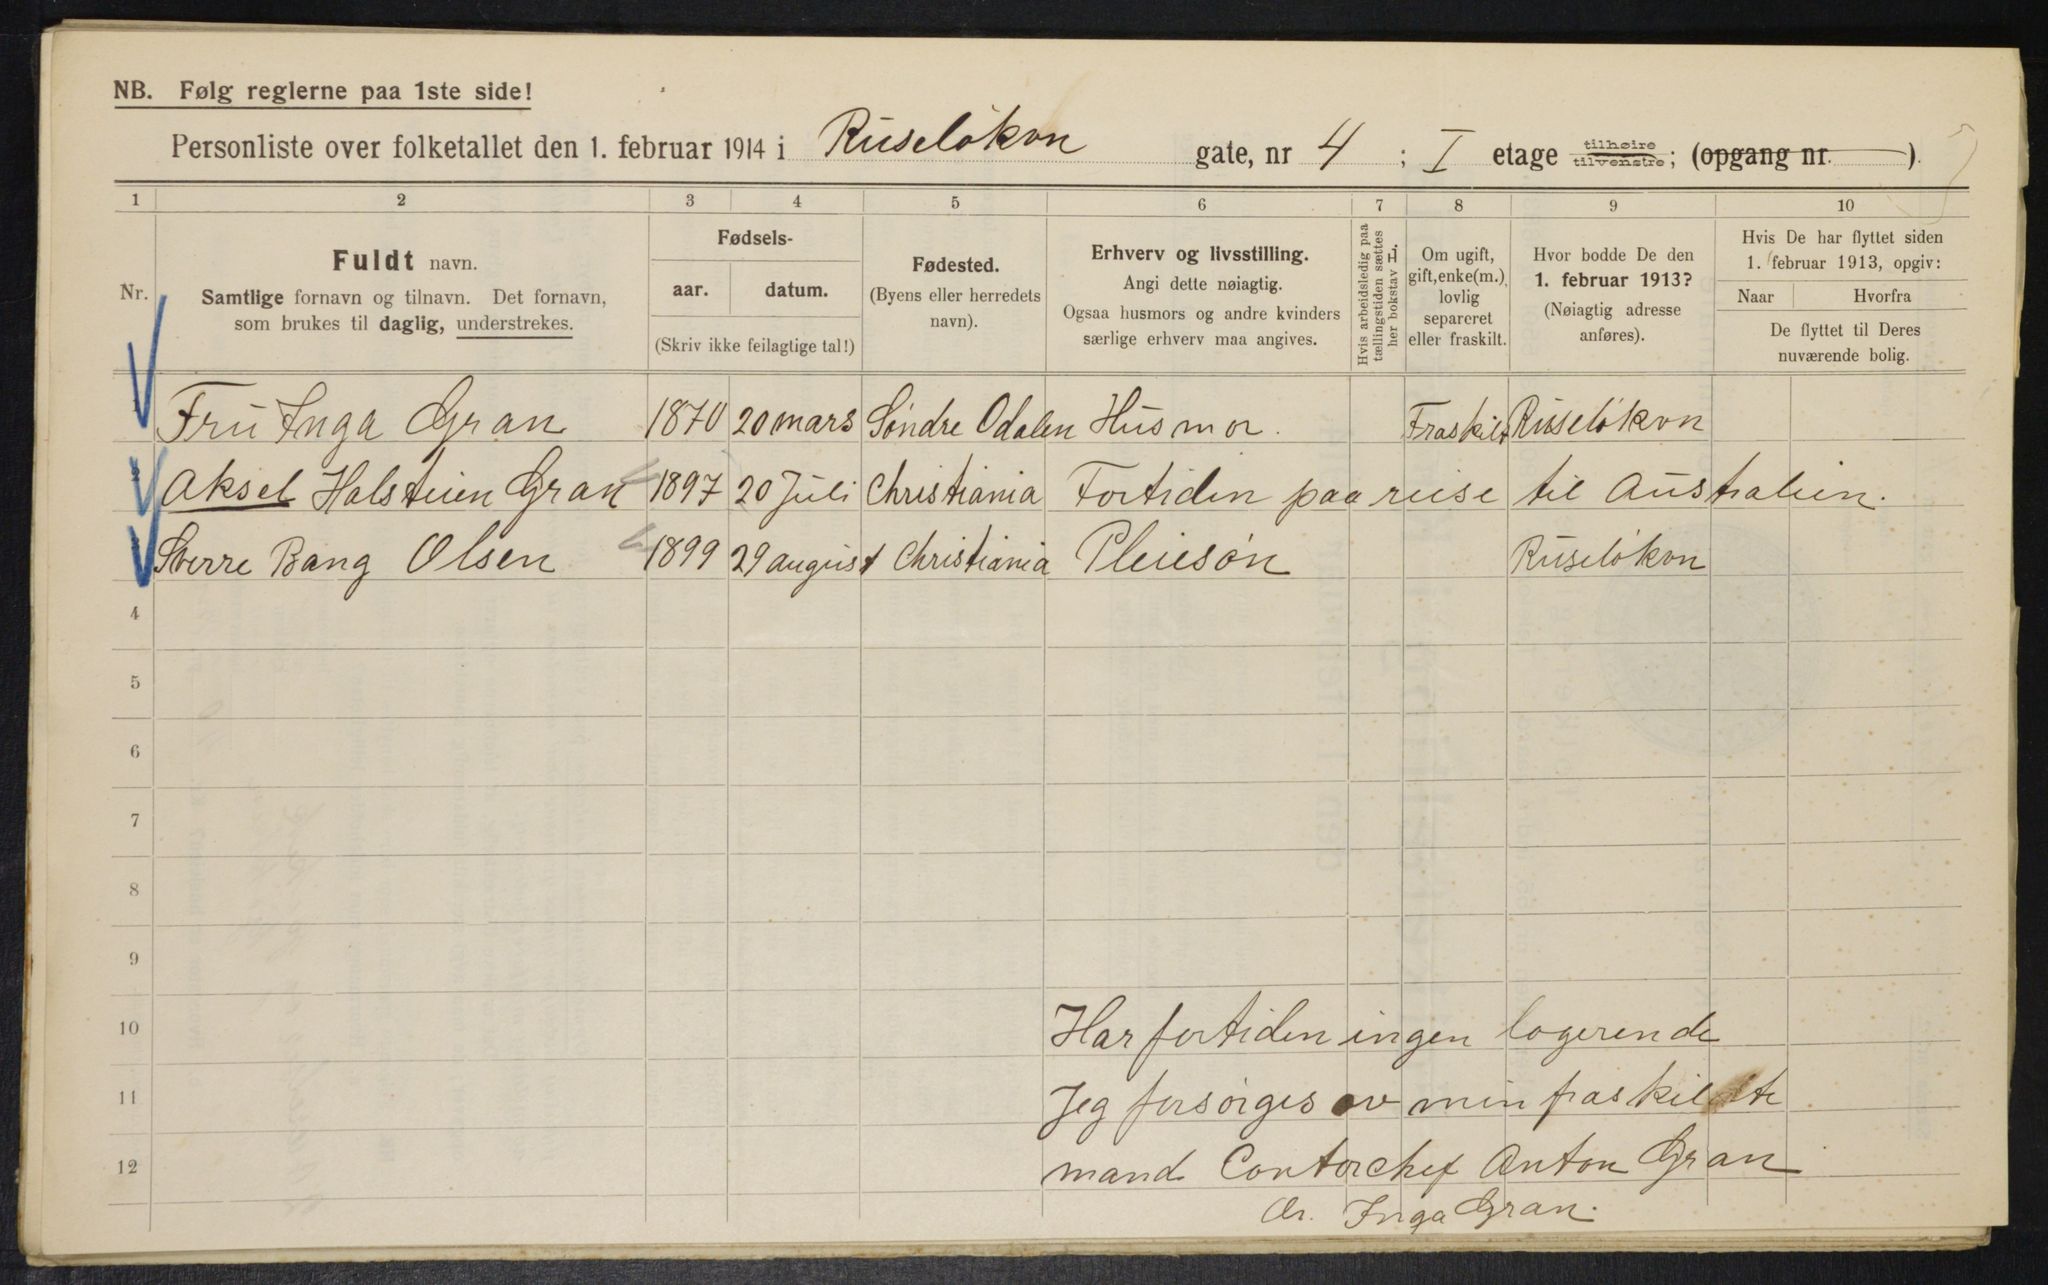 NB. Følg reglerne paa 1ste side!
Personliste over folketallet den 1. februar 1914 i Ruseløkvn gate, nr 4 ; I etage tilhøire tilvenstre; (opgang nr. )
1 2 3 4 5 6 7 8 9 10
Nr.
Fuldt navn.
Samtlige fornavn og tilnavn. Det fornavn,
som brukes til daglig, understrekes.
Fødsels-
aar. datum.
(Skriv ikke feilagtige tal!)
Fødested.
(Byens eller herredets
navn).
Erhverv og livsstilling.
Angi dette nøiagtig.
Ogsaa husmors og andre kvinders
særlige erhverv maa angives.
Hvis arbeidsledig paa
tællingstiden sættes
her bokstav L.
Om ugift,
gift, enke(m.),
lovlig
separeret
eller fraskilt.
Hvor bodde De den
1. februar 1913?
(Nøiagtig adresse
anføres).
Hvis De har flyttet siden
1. februar 1913, opgiv:
Naar Hvorfra
De flyttet til Deres
nuværende bolig.
Fru Inga Gran 1870 20 mars Søndre Odalen Husmor. Fraskilt Ruseløkvn
Aksel Halsteien Gran 1897 20 Juli Christiania Fortiden paa reise til Australien.
Sverre Bang Olsen 1899 29 august Christiania Pleiesøn Ruseløkvn
4
5
6
7
8
9
10 Har fortiden ingen logerende
11 Jeg forsørges av min fraskildte
12 mand Contorchef Anton Gran
Ær. Inga Gran.